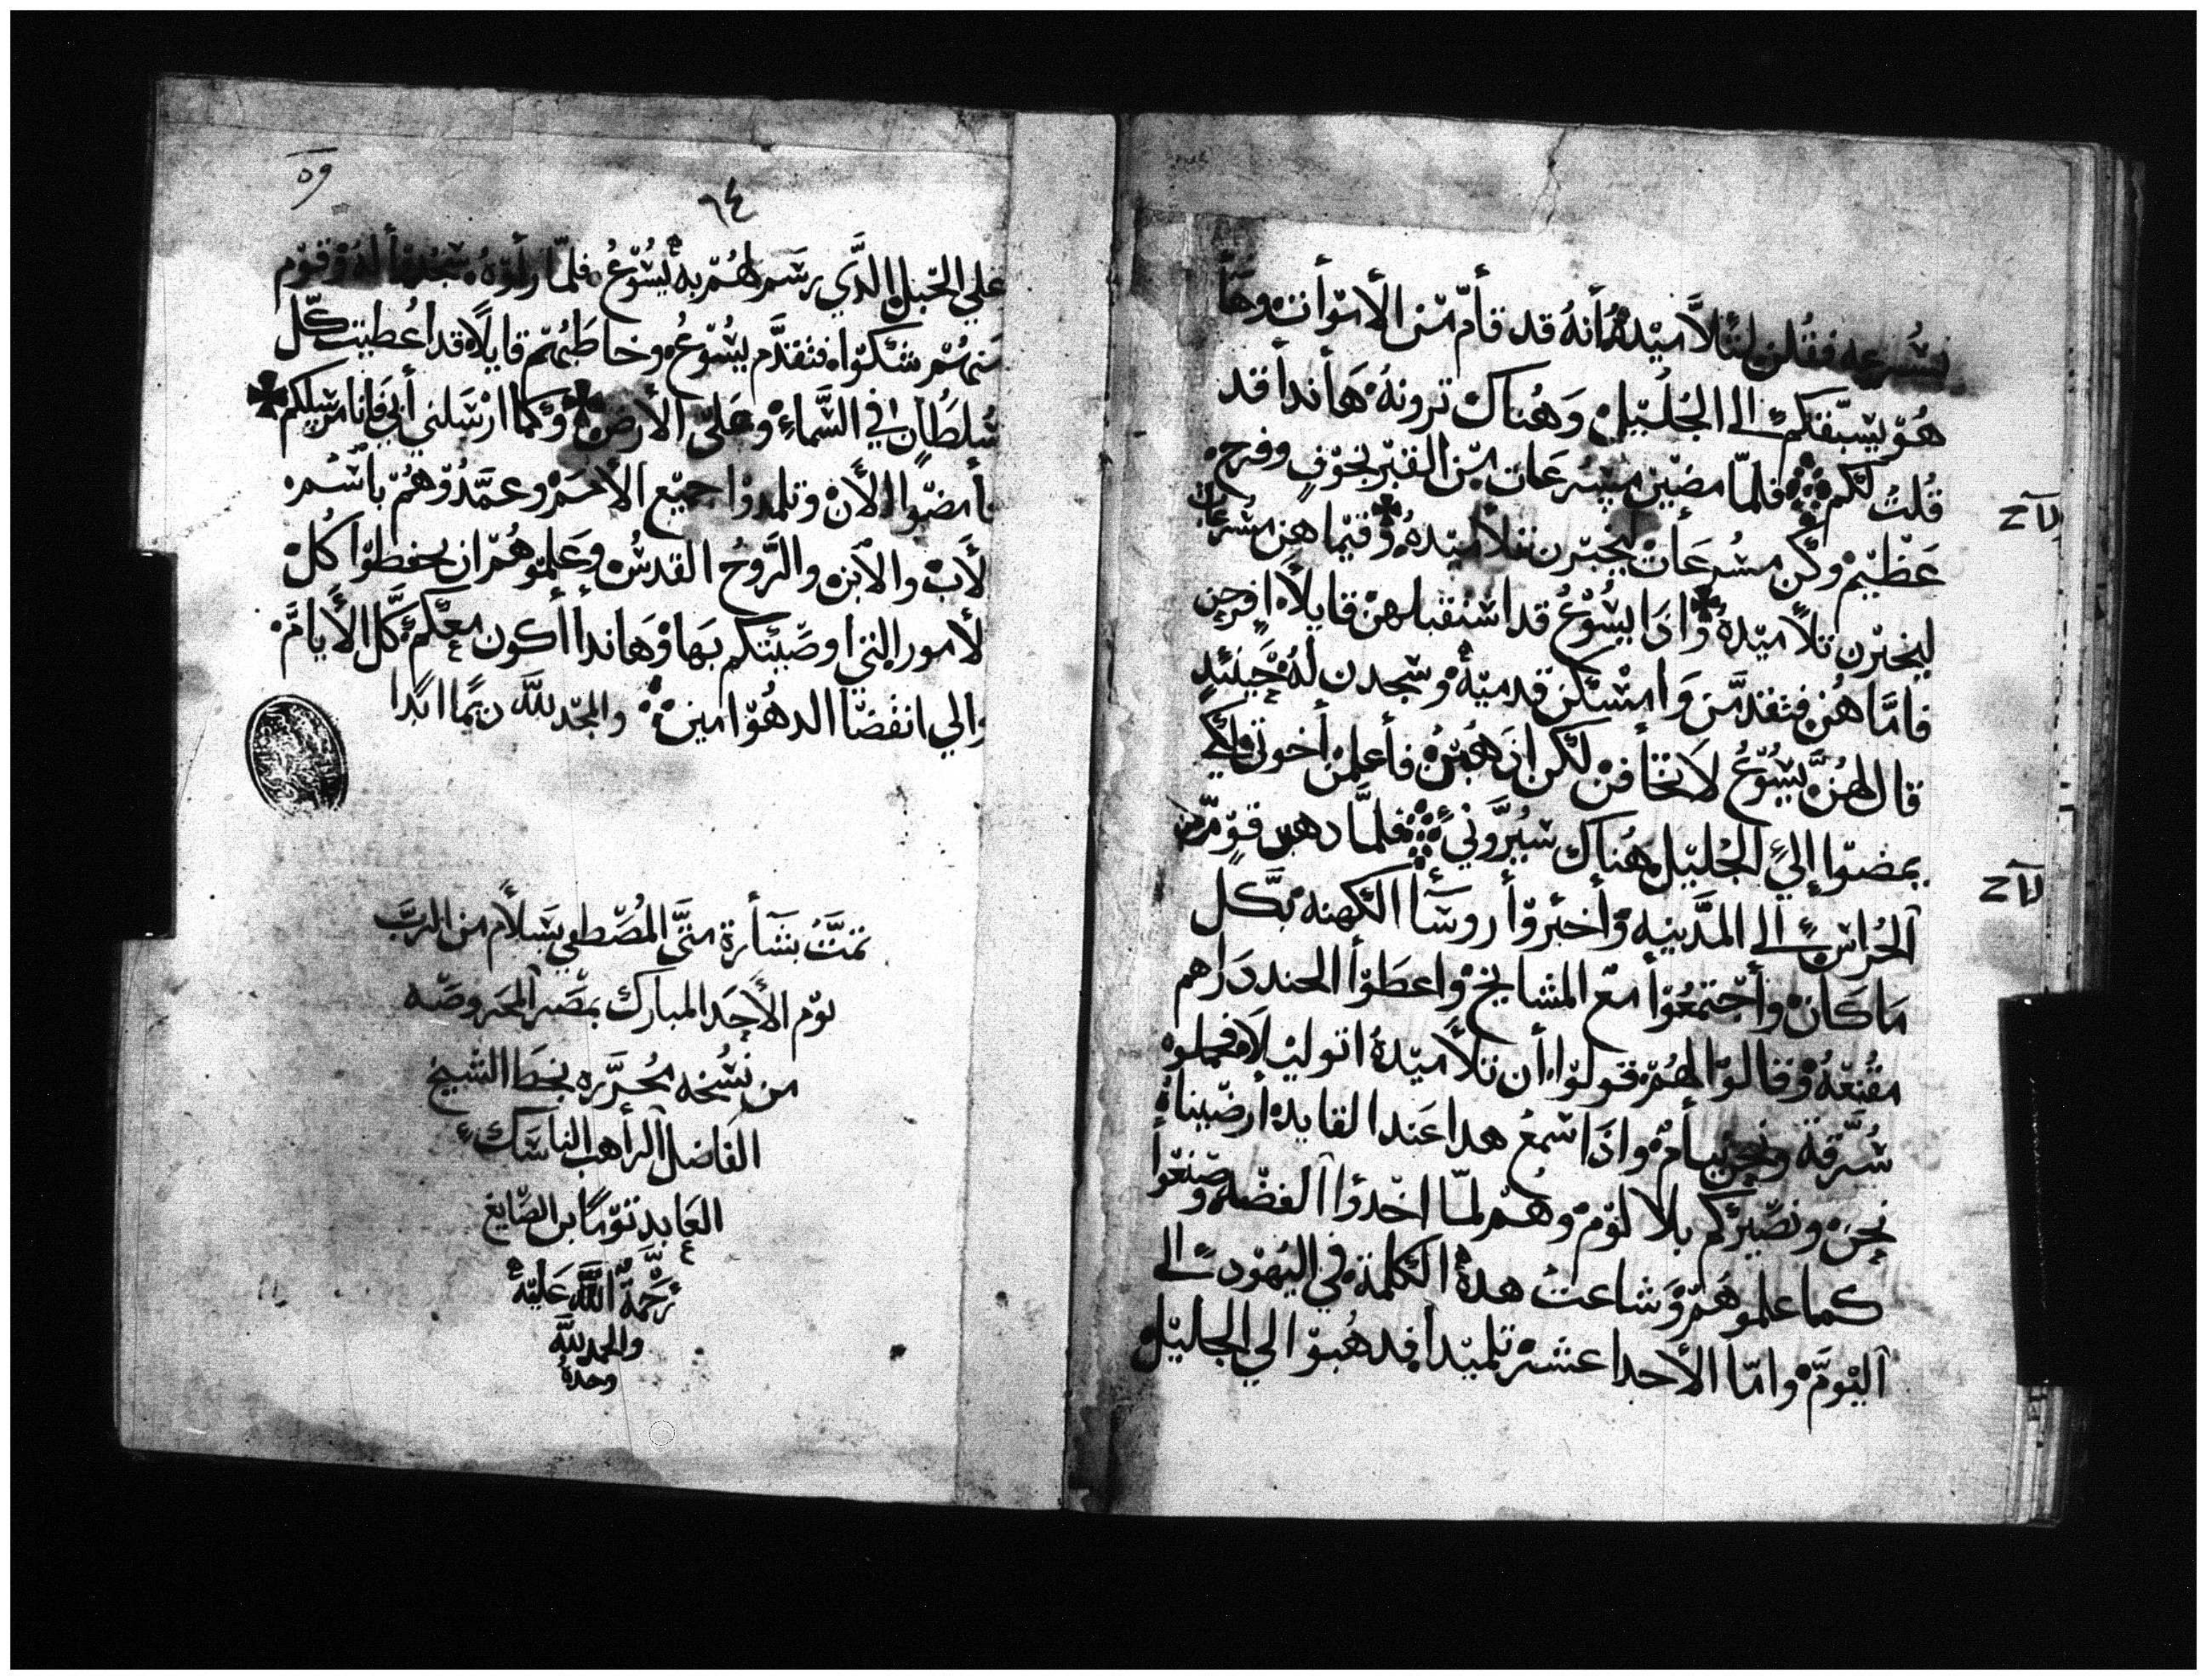 بسُرعه فقُلن لتلاميدهُ أنهُ قد قأم من الأموأت وهَأ
هُو يسبقكم الى الجُليل وَهُناك ترونهُ هَأندأ قد
قُلتُ لكم فلمّا مضين مسُرعَات من القبر بخوفٍ وفرح
عَظيم وكن مسُرعَات ليخبرن تلأميدهُ وفيما هن مسرعات
ليخبرن تلأميدهُ وادَا يسُوعُ قد استقبلهن قايلاً افرحن
فامَّا هُن فتقدمَّن وَامسَكن قدميهُ وسَجدن لهُ حَينئدٍ
قال لهُنَّ يسُوعُ لاَ تخأفن لكن ادهبنُ فأعلمن أخوتي لكي
يمضوا إلي الجُليل هُناك سَيُرَّوني فلمَّا دهبن قومٌ من
الحُراس الى المدَّينه وأخبروأ روسَأ الكهنه بكَّل
مَا كَان وأجتمعُوأ مع المشايخ واعطَوأ الجند دَراهم
مقنعهُ وقالوا لهُم قولوا أن تلأميدهُ اتو ليلاً فحملوهُ
سُرَّقة ونحن نيأمُ وادَا سَمعُ هدا عَند القايد أرضيناهُ
نحن ونصّيركم بلا لوم وهُم لمّا اخدوا الفضّه وصنعوأ
كما علموهَم وشاعتُ هدهُ الكلمة في اليهُود الى
اليومَّ وامّا الأحد اعشر تلميدأ فدهُبوا الي الجاليل
٥٩
٦٤
علي الجبل الدَّي رسَم لهُم به يسُوعُ فلمّا رأوهُ سَجُدوأ لهُ وقوم
منهُم شكوا فتقدَّم يسُوعُ وخاطبُهم قايلاً قد اعُطيت كُل
سُلطَان في السَّماءِ وعَلى الأرض وكما ارسَلني أبي فانا مرسلكم
فأمضوا الأن وتلمدوا جميع الأممَ وعمَّدُوهُم باسمُ
الأَب والأبن والرَّوُح القدسُ وعَلموهُم ان يحفطوا كُل
الأمور التي أوصَيتكم بهَا وهَاندا أكون معكم كَّل الأيامَّ
والي انفضَا الدهُو امين والمجد للَّه دايمًا ابدًا
تمتَّ بشأرة متَّى المُصّطفي بسَلاَم من الربَّ
يوم الأحَد المبارك بمصَر المحَروصَه
من نسُخه مُحرَّره بخطَ الشيخ
الفَاضل الرأهب الناسَك
العَابد توما ابن الصَّايغ
رَّحَمةُ اللَّه عَليه
والحمد للَّه
وحدهُ